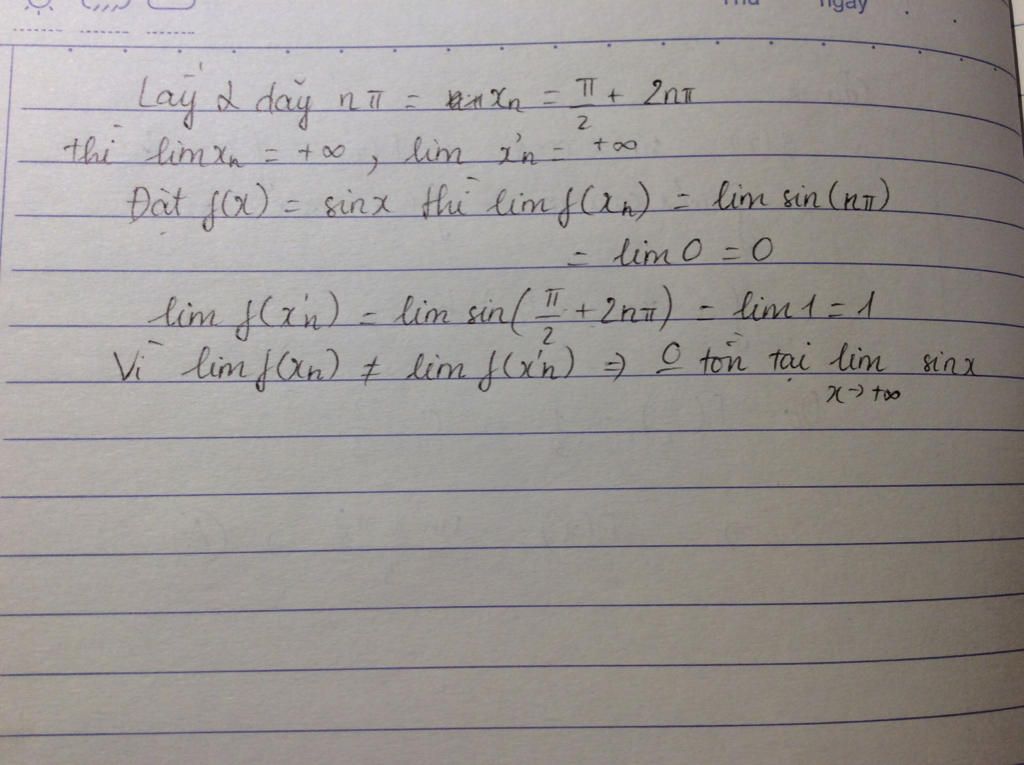 Thứ ngày
Lấy 2 dãy nπ = xn = π/2 + 2nπ
thì lim xn = +∞, lim x'n = +∞
Đặt f(x) = sinx thì lim f(xn) = lim sin(nπ)
= lim 0 = 0
lim f(x'n) = lim sin(π/2 + 2nπ) = lim 1 = 1
Vì lim f(xn) ≠ lim f(x'n) ⇒ 0 tồn tại lim sinx
x→+∞